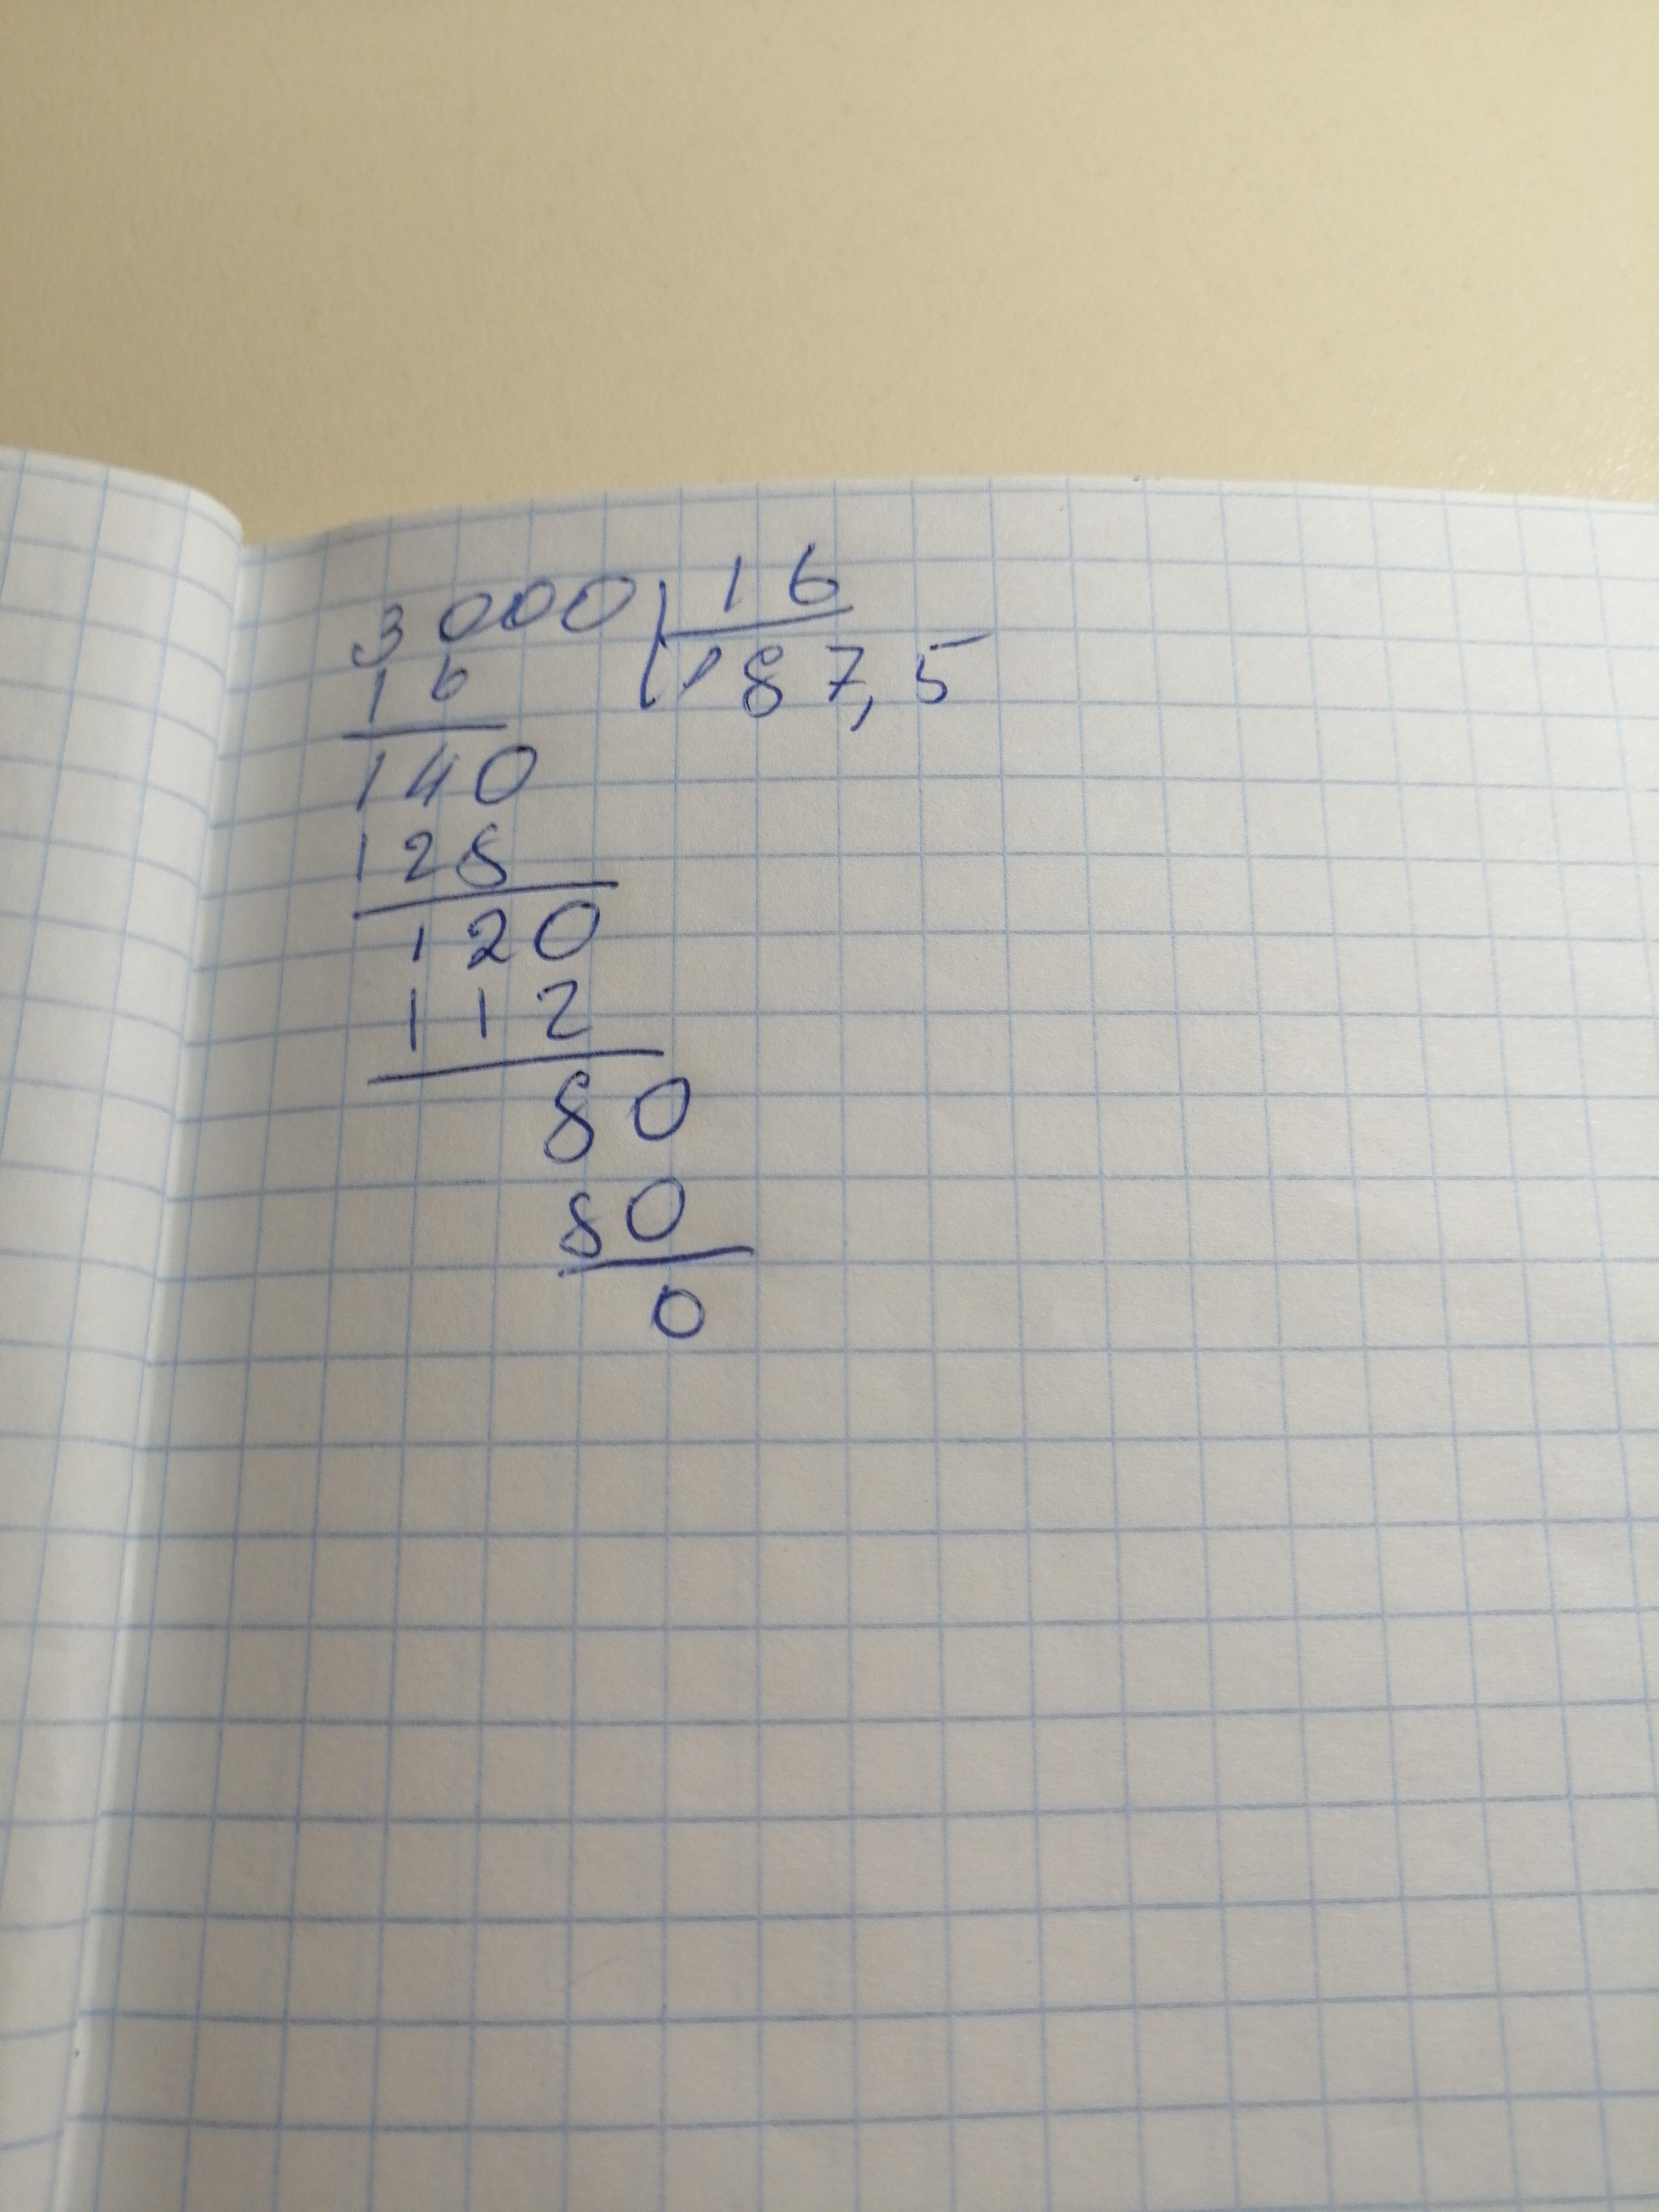 3000 16
16 187,5
140
128
120
112
80
80
0